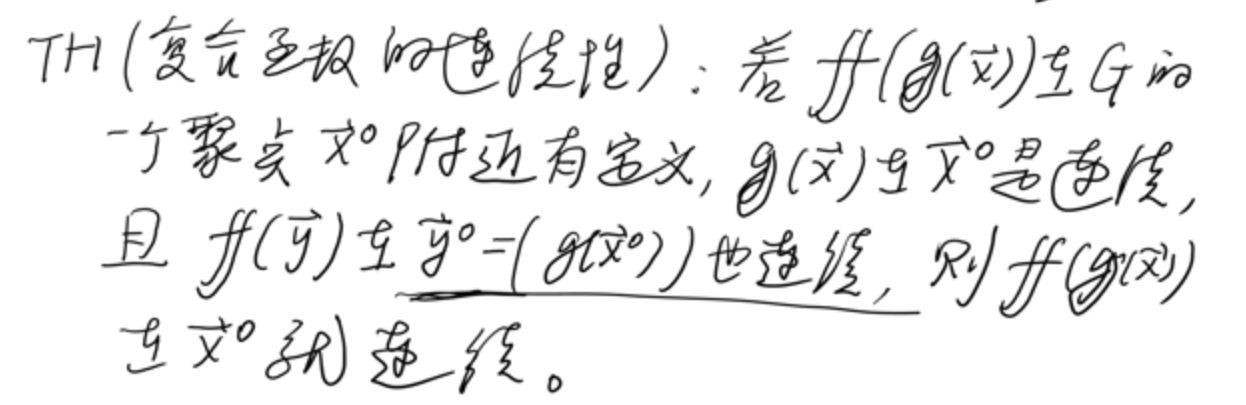 TH(复合函数的连续性):若 f(g(x⃗))在G的
一个聚点 x⃗⁰ 附近有定义, g(x⃗)在 x⃗⁰ 是连续,
且 f(y⃗)在 y⃗⁰=(g(x⃗⁰))也连续, 则 f(g(x⃗))
在 x⃗⁰ 就连续。